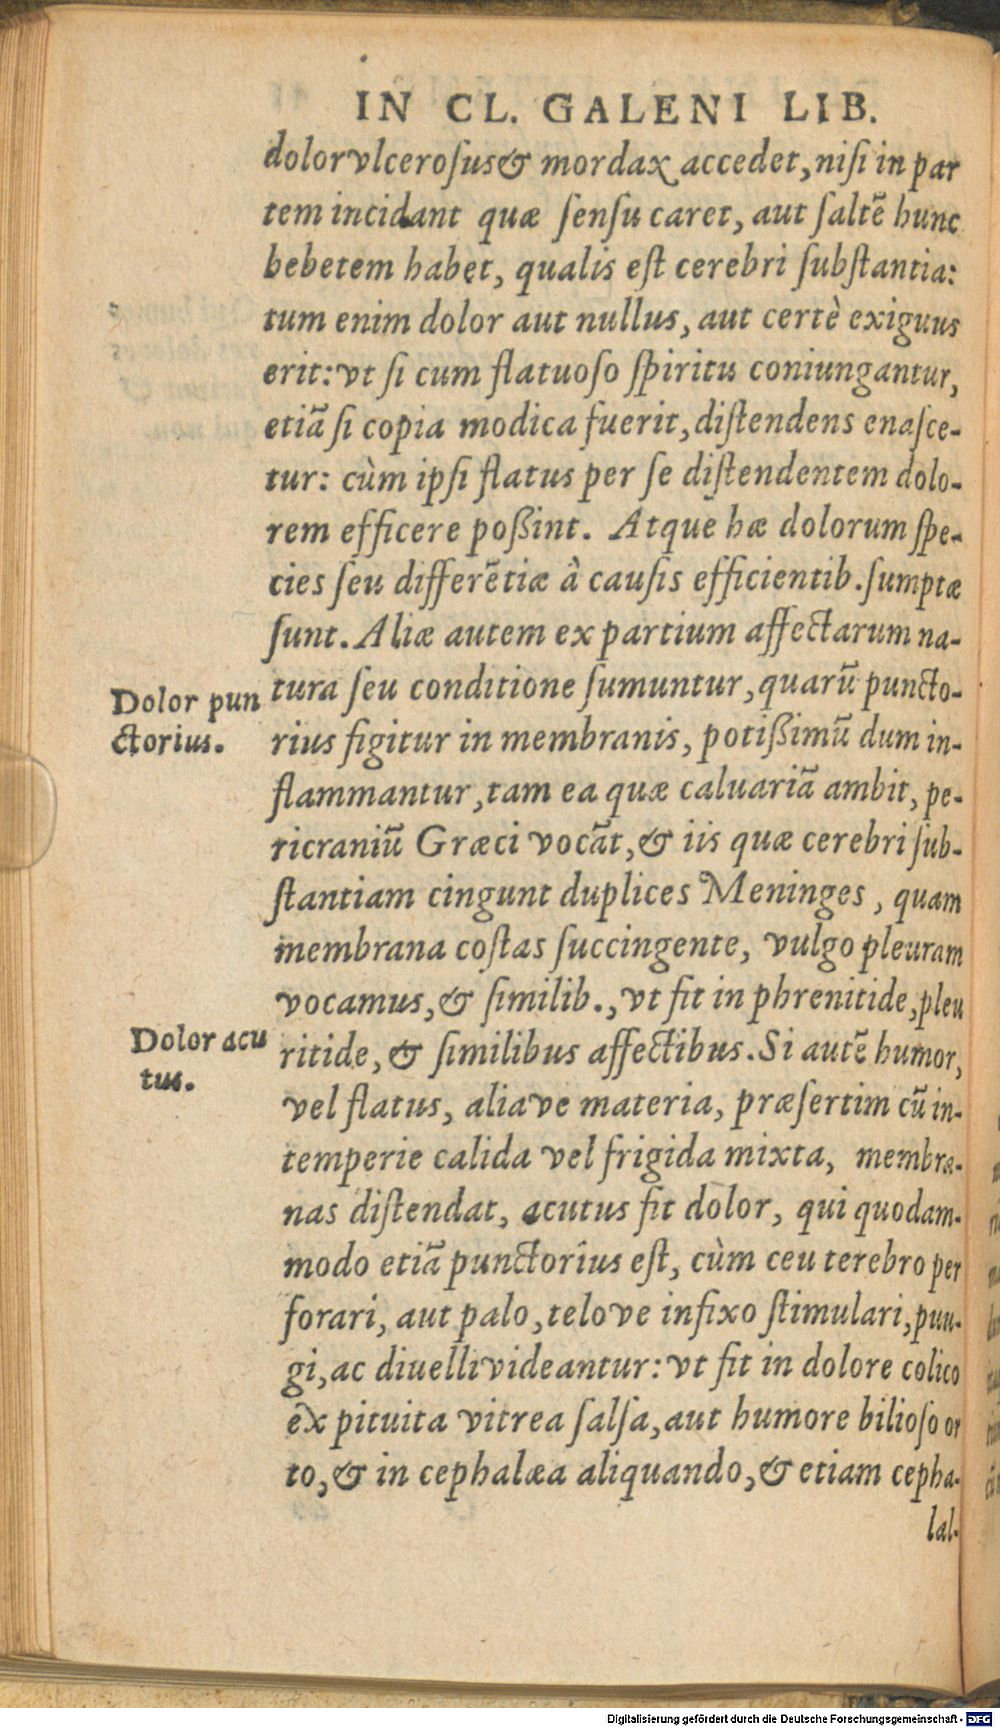 IN CL. GALENI LIB.
dolor vlcerosus & mordax accedet, nisi in par
tem incidant quæ sensu caret, aut saltẽ hunc
hebetem habet, qualis est cerebri substantia:
tum enim dolor aut nullus, aut certè exiguus
erit: vt si cum flatuoso spiritu coniungantur,
etiã si copia modica fuerit, distendens enasce-
tur: cùm ipsi flatus per se distendentem dolo-
rem efficere poßint. Atque hæ dolorum spe-
cies seu differẽtiæ â causis efficientib. sumptæ
sunt. Aliæ autem ex partium affectarum na-
Dolor pun
ctorius.
tura seu conditione sumuntur, quarũ puncto-
rius figitur in membranis, potißimũ dum in-
flammantur, tam ea quæ caluariã ambit, pe-
ricraniũ Græci vocãt, & iis quæ cerebri sub-
stantiam cingunt duplices Meninges, quam
membrana costas succingente, vulgo pleuram
vocamus, & similib., vt fit in phrenitide, pleu
Dolor acu
tus.
ritide, & similibus affectibus. Si autẽ humor,
vel flatus, aliave materia, præsertim cũ in-
temperie calida vel frigida mixta, membra-
nas distendat, acutus fit dolor, qui quodam-
modo etiã punctorius est, cùm ceu terebro per
forari, aut palo, telove infixo stimulari, pun-
gi, ac diuelli videantur: vt fit in dolore colico
ex pituita vitrea salsa, aut humore bilioso or
to, & in cephalæa aliquando, & etiam cepha-
lal-
Digitalisierung gefördert durch die Deutsche Forschungsgemeinschaft - DFG